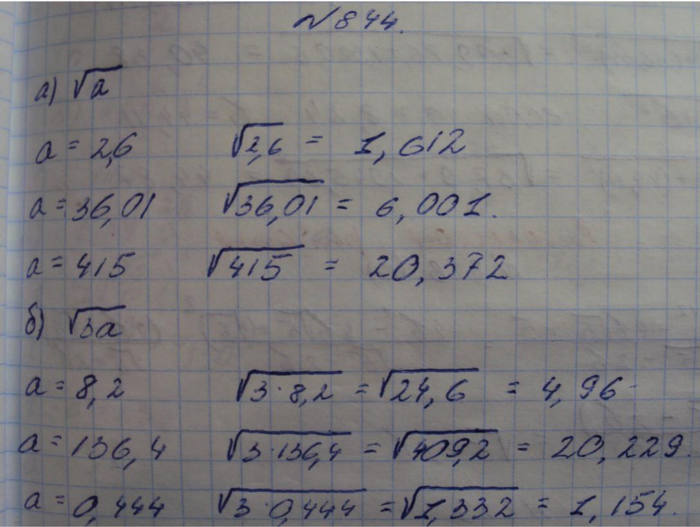 №844.
а) √a
a = 2,6 √2,6 = 1,612
a = 36,01 √36,01 = 6,001.
a = 415 √415 = 20,372
б) √3a
a = 8,2 √3·8,2 = √24,6 = 4,96
a = 136,4 √3·136,4 = √409,2 = 20,229.
a = 0,444 √3·0,444 = √1,332 = 1,154.